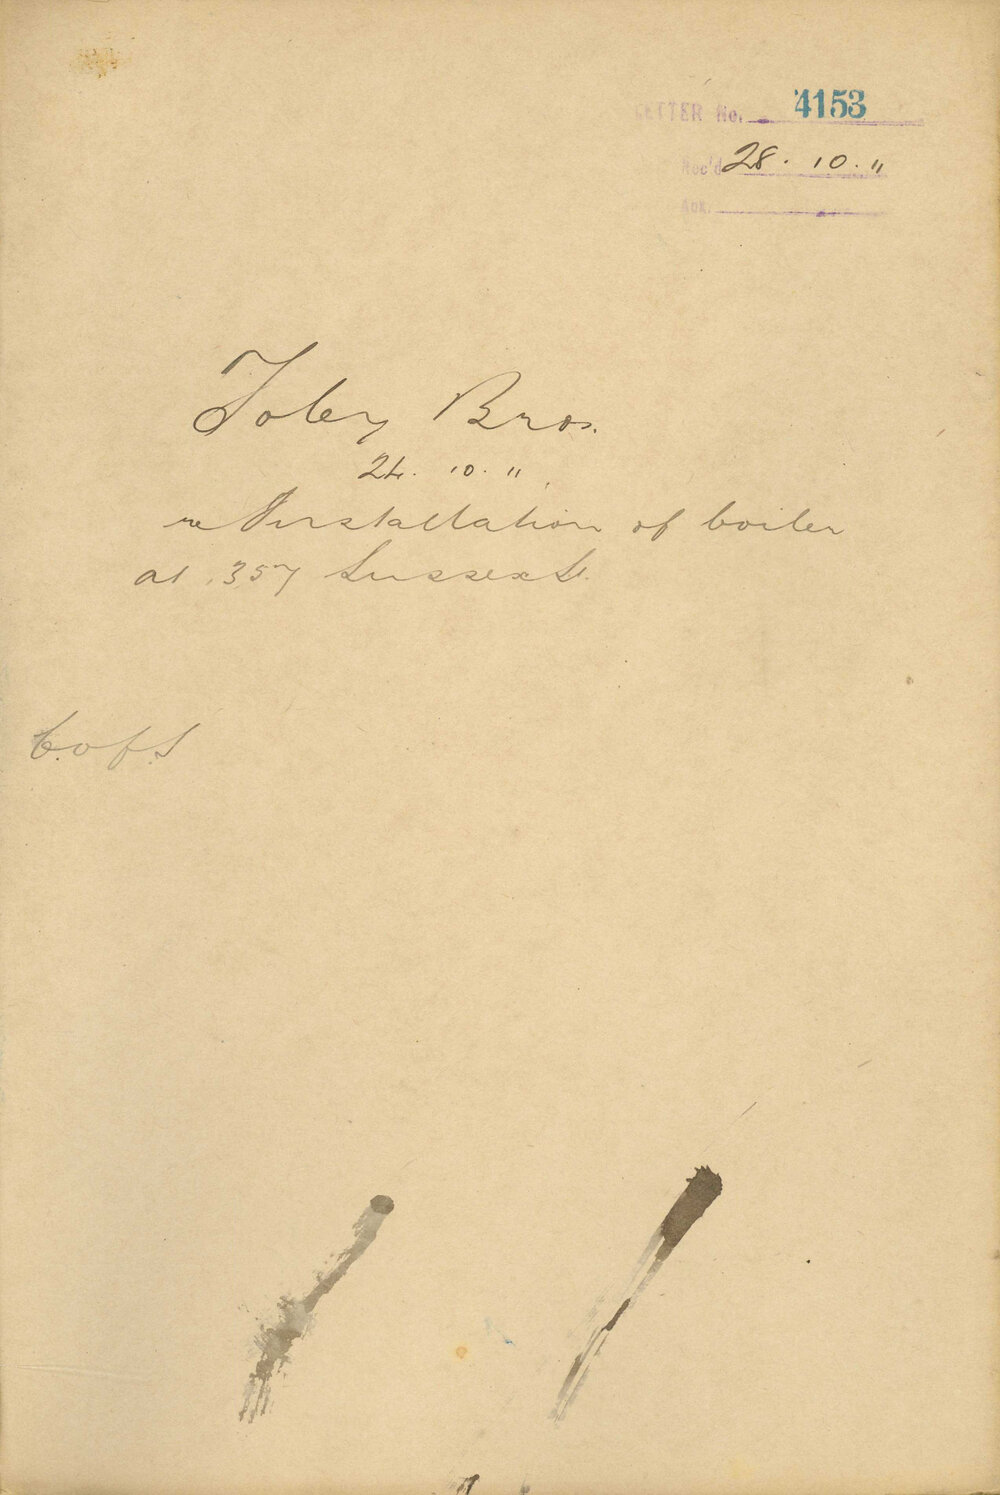 LETTER No. 4153
Rec'd 28. 10. 11
Ack.
Foley Bros.
24. 10. 11
re Installation of boiler
at 357 Sussex St.
C. of S